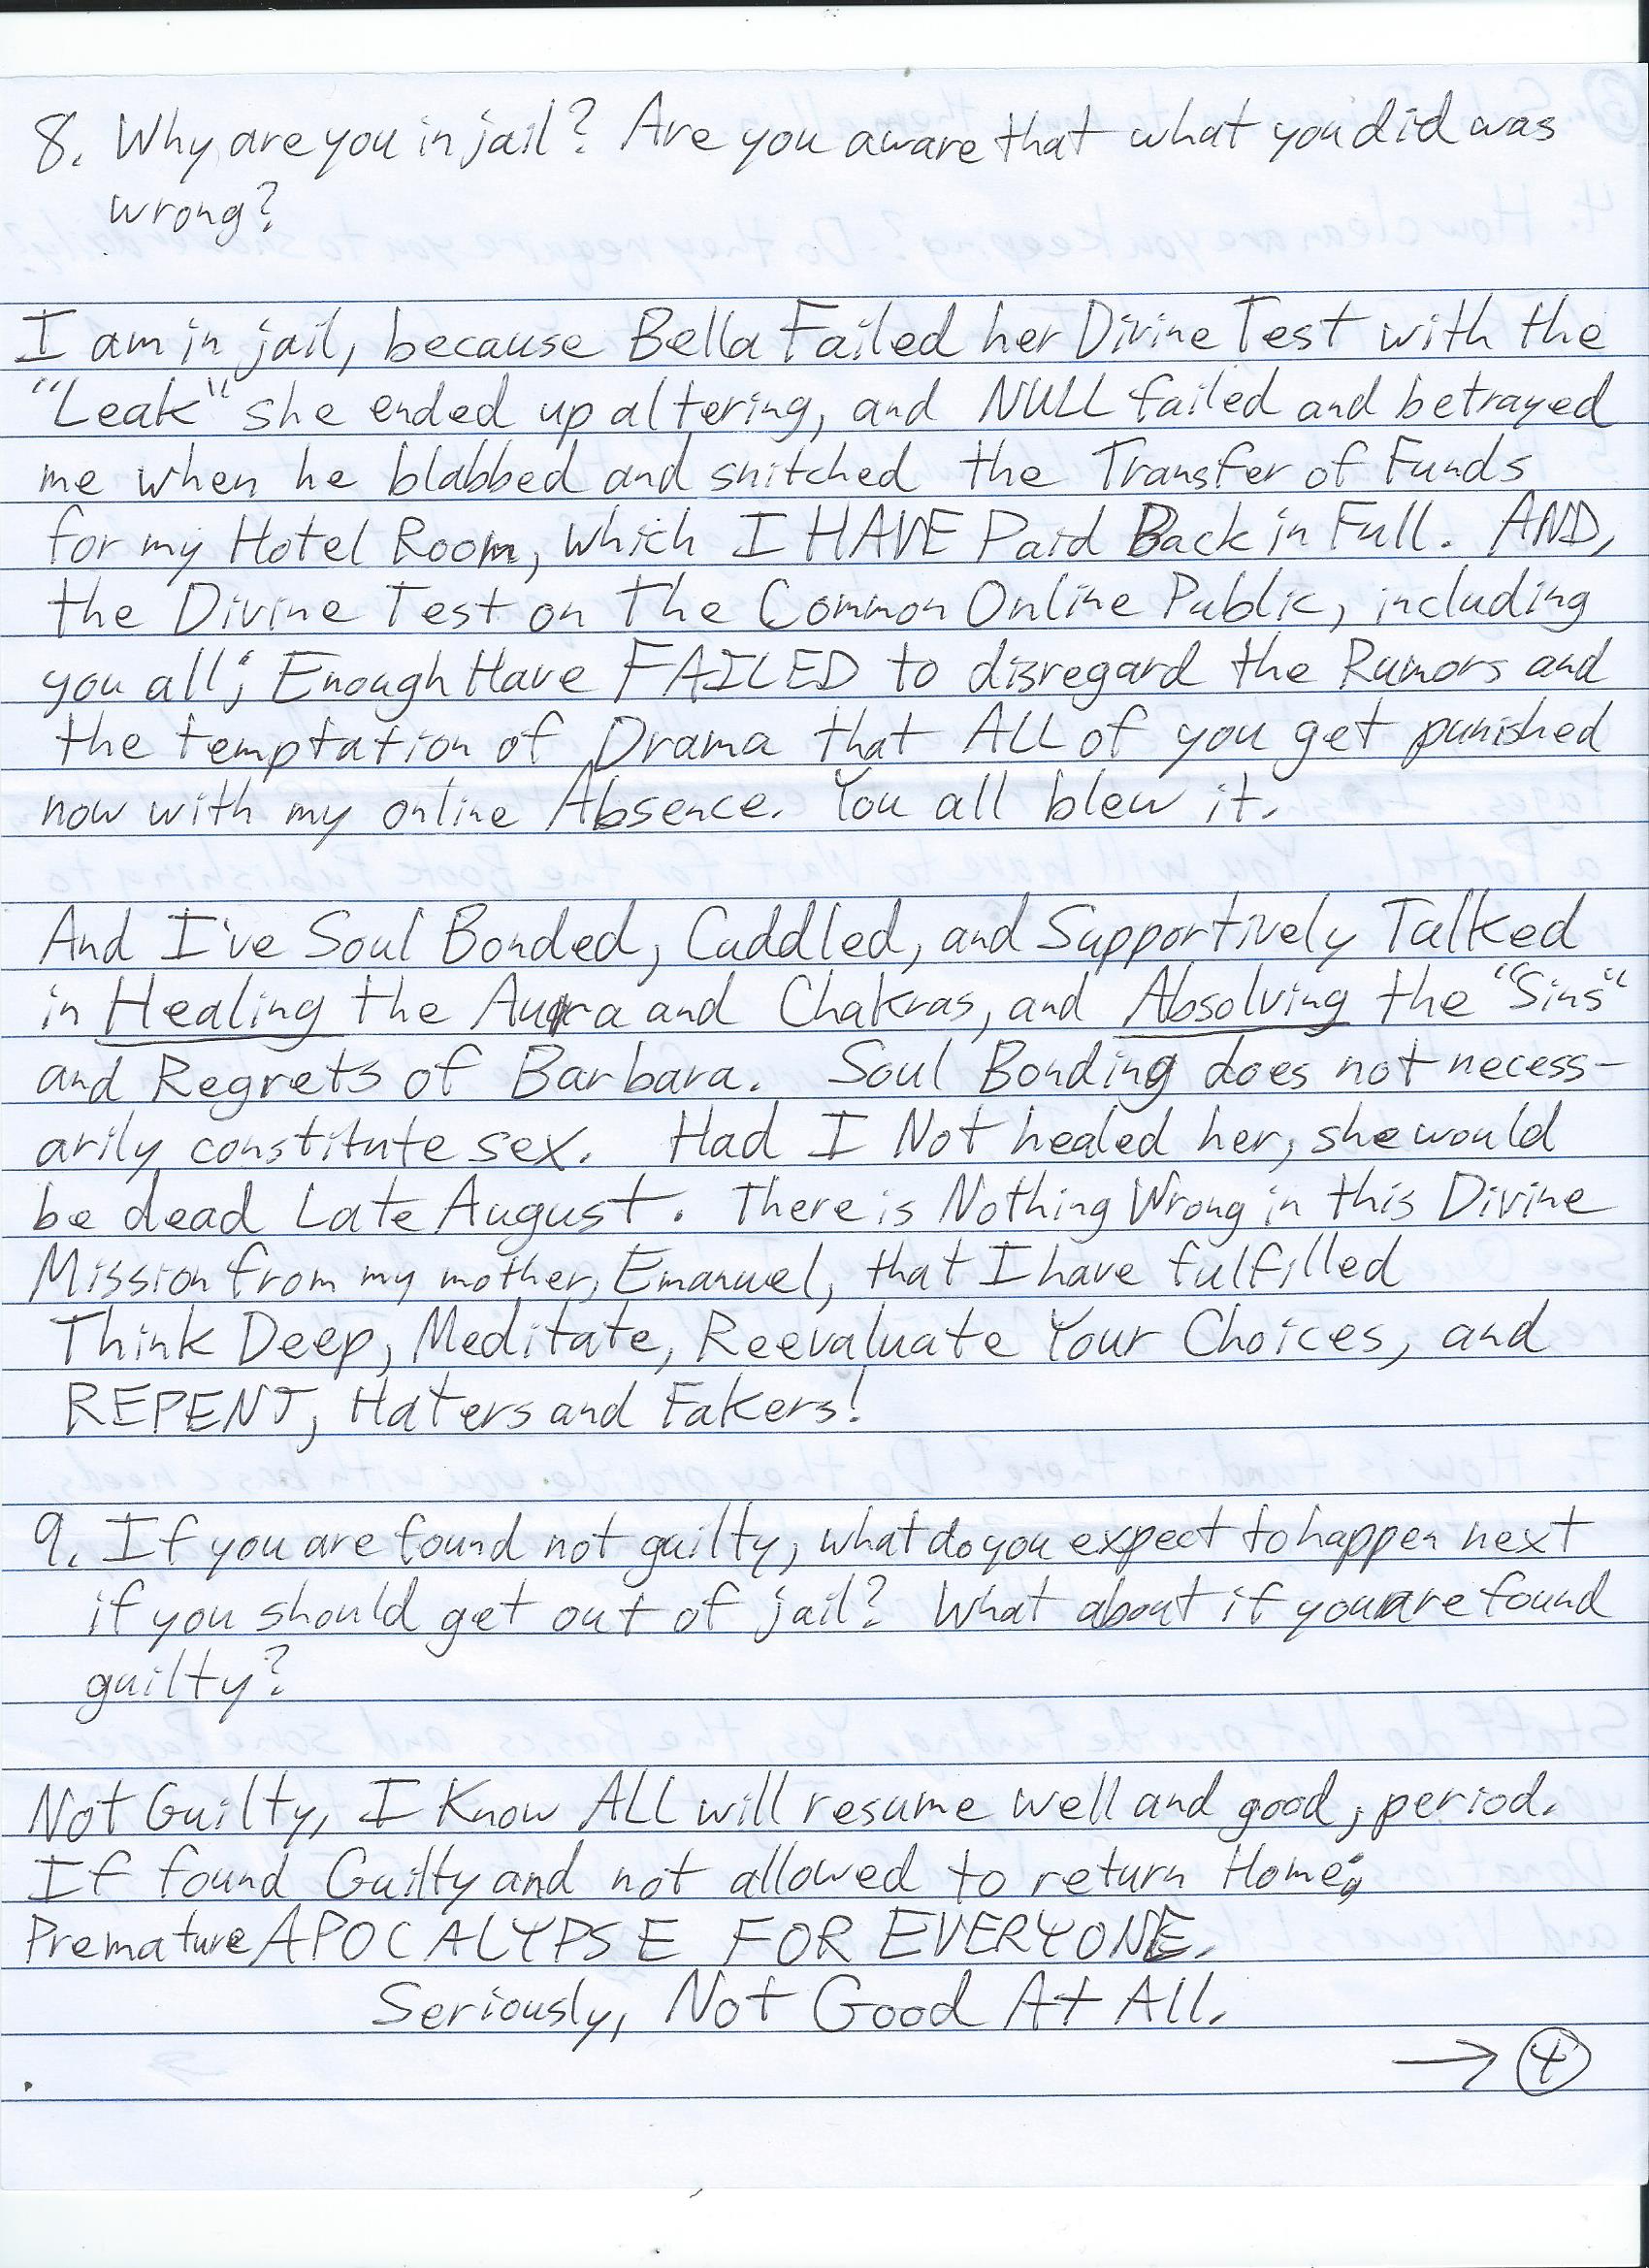 8. Why are you in jail? Are you aware that what you did was
wrong?
I am in jail, because Bella Failed her Divine Test with the
"Leak" she ended up altering, and NULL failed and betrayed
me when he blabbed and snitched the Transfer of Funds
for my Hotel Room, which I HAVE Paid Back in Full. AND,
the Divine Test on The Common Online Public, including
you all; Enough Have FAILED to disregard the Rumors and
the temptation of Drama that ALL of you get punished
now with my online Absence. You all blew it.
And I've Soul Bonded, Cuddled, and Supportively Talked
in Healing the Aura and Chakras, and Absolving the "Sins"
and Regrets of Barbara. Soul Bonding does not necess-
arily constitute sex. Had I Not healed her, she would
be dead Late August. There is Nothing Wrong in this Divine
Mission from my mother, Emanuel, that I have fulfilled
Think Deep, Meditate, Reevaluate Your Choices, and
REPENT, Haters and Fakers!
9. If you are found not guilty, what do you expect to happen next
if you should get out of jail? What about if you are found
guilty?
Not Guilty, I Know ALL will resume well and good, period.
If found Guilty and not allowed to return Home;
Premature APOCALYPSE FOR EVERYONE.
Seriously, Not Good At All.
→ 4